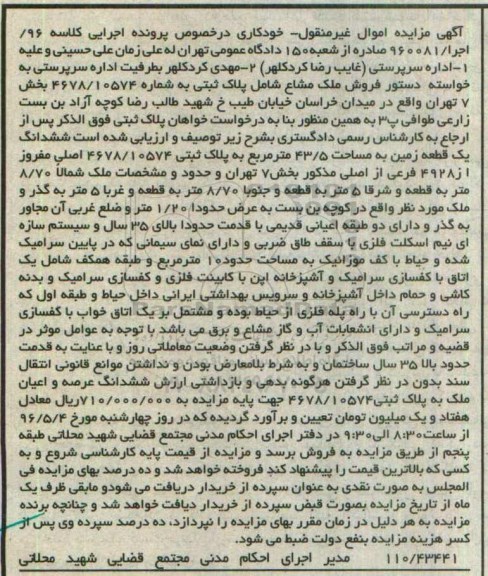 آگهی مزایده اموال غیرمنقول- خودکاری درخصوص پرونده اجرایی کلاسه ۹۶/
اجرا/۹۶۰۰۸۱ صادره از شعبه۱۵۰ دادگاه عمومی تهران له علی زمان علی حسینی و علیه
۱-اداره سرپرستی (غایب رضا کردکلهر) ۲-مهدی کردکلهر بطرفیت اداره سرپرستی به
خواسته دستور فروش ملک مشاع شامل پلاک ثبتی به شماره ۴۶۷۸/۱۰۵۷۴ بخش
۷ تهران واقع در میدان خراسان خیابان طیب خ شهید طالب رضا کوچه آزاد بن بست
زارعی طوافی پ۳ به همین منظور بنا به درخواست خواهان پلاک ثبتی فوق الذکر پس از
ارجاع به کارشناس رسمی دادگستری بشرح زیر توصیف و ارزیابی شده است ششدانگ
یک قطعه زمین به مساحت ۴۳/۵ مترمربع به پلاک ثبتی ۴۶۷۸/۱۰۵۷۴ اصلی مفروز
از۴۹۲۸ فرعی از اصلی مذکور بخش۷ تهران و حدود و مشخصات ملک شمالا ۸/۷۰
متر به قطعه و شرقا ۵ متر به قطعه و جنوبا ۸/۷۰ متر به قطعه و غربا ۵ متر به گذر و
ملک مورد نظر واقع در کوچه بن بست به عرض حدودا ۱/۲۰ متر و ضلع غربی آن مجاور
به گذر و دارای دو طبقه اعیانی قدیمی با قدمت حدودا بالای ۳۵ سال و سیستم سازه
ای نیم اسکلت فلزی با سقف طاق ضربی و دارای نمای سیمانی که در پایین سرامیک
شده و حیاط با کف موزائیک به مساحت حدود۱۰ مترمربع و طبقه همکف شامل یک
اتاق با کفسازی سرامیک و آشپزخانه اپن با کابینت فلزی و کفسازی سرامیک و بدنه
کاشی و حمام داخل آشپزخانه و سرویس بهداشتی ایرانی داخل حیاط و طبقه اول که
راه دسترسی آن با راه پله فلزی از حیاط بوده و مشتمل بر یک اتاق خواب با کفسازی
سرامیک و دارای انشعابات آب و گاز مشاع و برق می باشد با توجه به عوامل موثر در
قضیه و مراتب فوق الذکر و با در نظر گرفتن وضعیت معاملاتی روز و با عنایت به قدمت
حدود بالا ۳۵ سال ساختمان و به شرط بلامعارض بودن و نداشتن موانع قانونی انتقال
سند بدون در نظر گرفتن هرگونه بدهی و بازداشتی ارزش ششدانگ عرصه و اعیان
ملک به پلاک ثبتی۴۶۷۸/۱۰۵۷۴ جهت پایه مزایده به ۷۱۰/۰۰۰/۰۰۰ریال معادل
هفتاد و یک میلیون تومان تعیین و برآورد گردیده که در روز چهارشنبه مورخ ۹۶/۵/۴
از ساعت۸:۳۰ الی۹:۳۰ در دفتر اجرای احکام مدنی مجتمع قضایی شهید محلاتی طبقه
پنجم از طریق مزایده به فروش برسد و مزایده از قیمت پایه کارشناسی شروع و به
کسی که بالاترین قیمت را پیشنهاد کند فروخته خواهد شد و ده درصد بهای مزایده فی
المجلس به صورت نقدی به عنوان سپرده از خریدار دریافت می شودو مابقی ظرف یک
ماه از تاریخ مزایده بصورت قبض سپرده از خریدار دیافت خواهد شد و چنانچه برنده
مزایده به هر دلیل در زمان مقرر بهای مزایده را نپردازد، ده درصد سپرده وی پس از
کسر هزینه مزایده بنفع دولت ضبط می شود.
۱۱۰/۴۳۴۴۱ مدیر اجرای احکام مدنی مجتمع قضایی شهید محلاتی